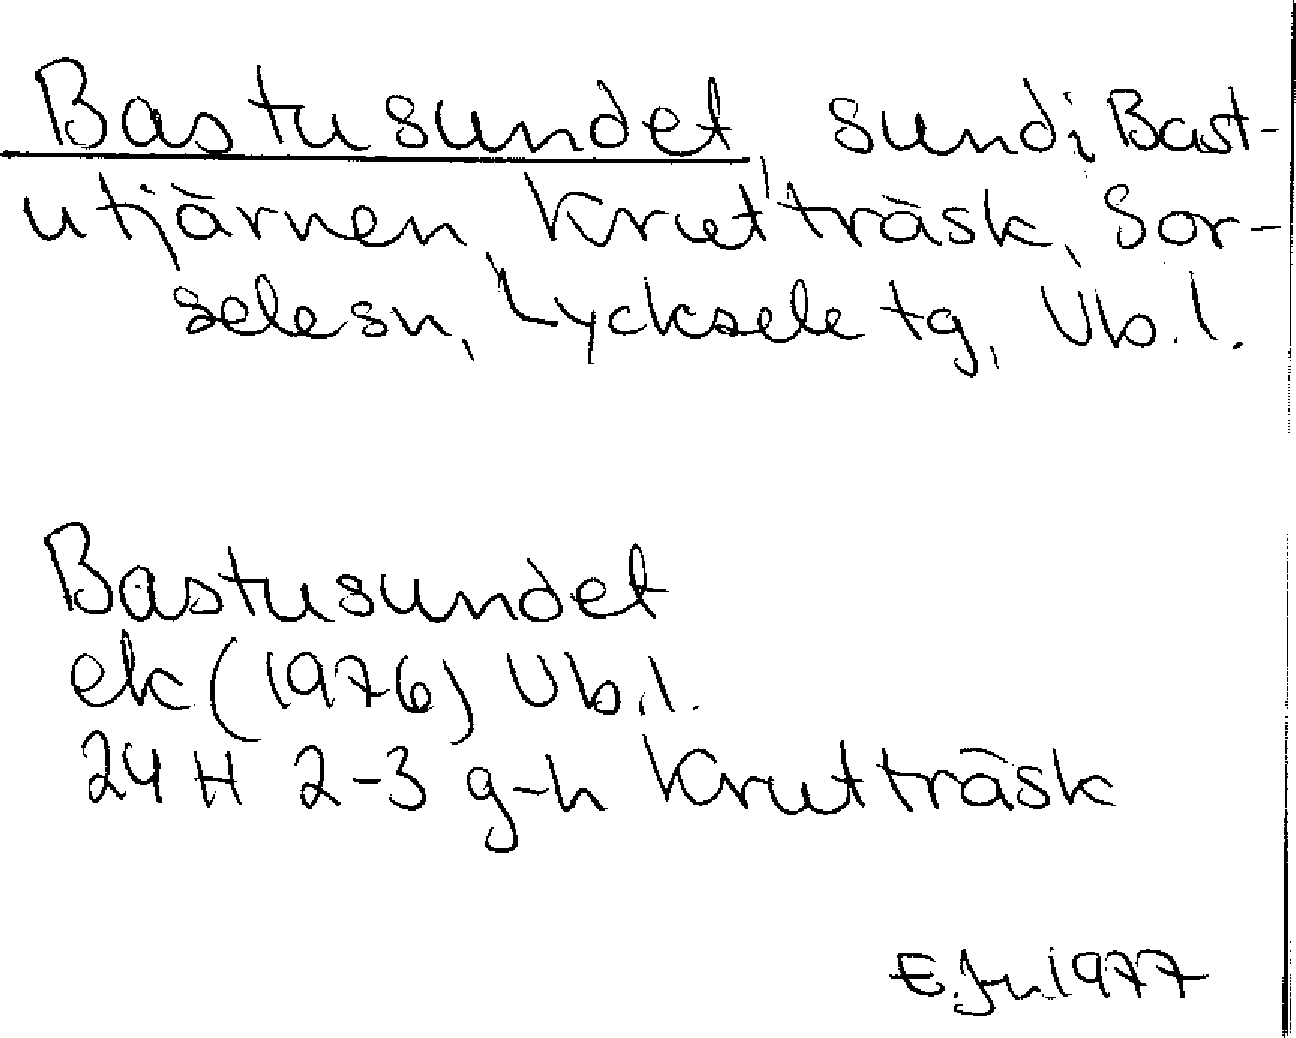 Bastusundet, sund i Bast-
utjärnen, Krutträsk, Sor-
sele sn, Lycksele tg, Vb. l.
Bastusundet
ek (1976) Vb. l.
24 H 2-3 g-h Krutträsk
E. Jn. 1977